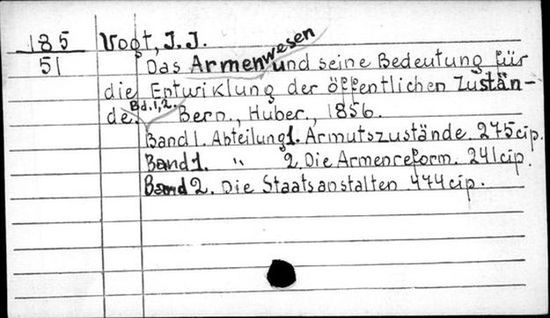 185 Vogt, J.J.
51 Das Armenwesen und seine Bedeutung für
die Entwiklung der öffentlichen Zustän-
de. Bd. 1, 2. Bern, Huber, 1856.
Band 1. Abteilung 1. Armutszustände. 275 cip.
Band 1. " 2. Die Armenreform. 241 cip.
Band 2. Die Staatsanstalten 474 cip.